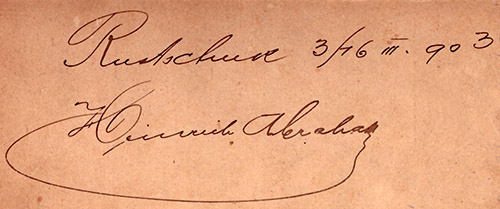 Rustschuk 3/16 III. 903
Heinrich Abraham